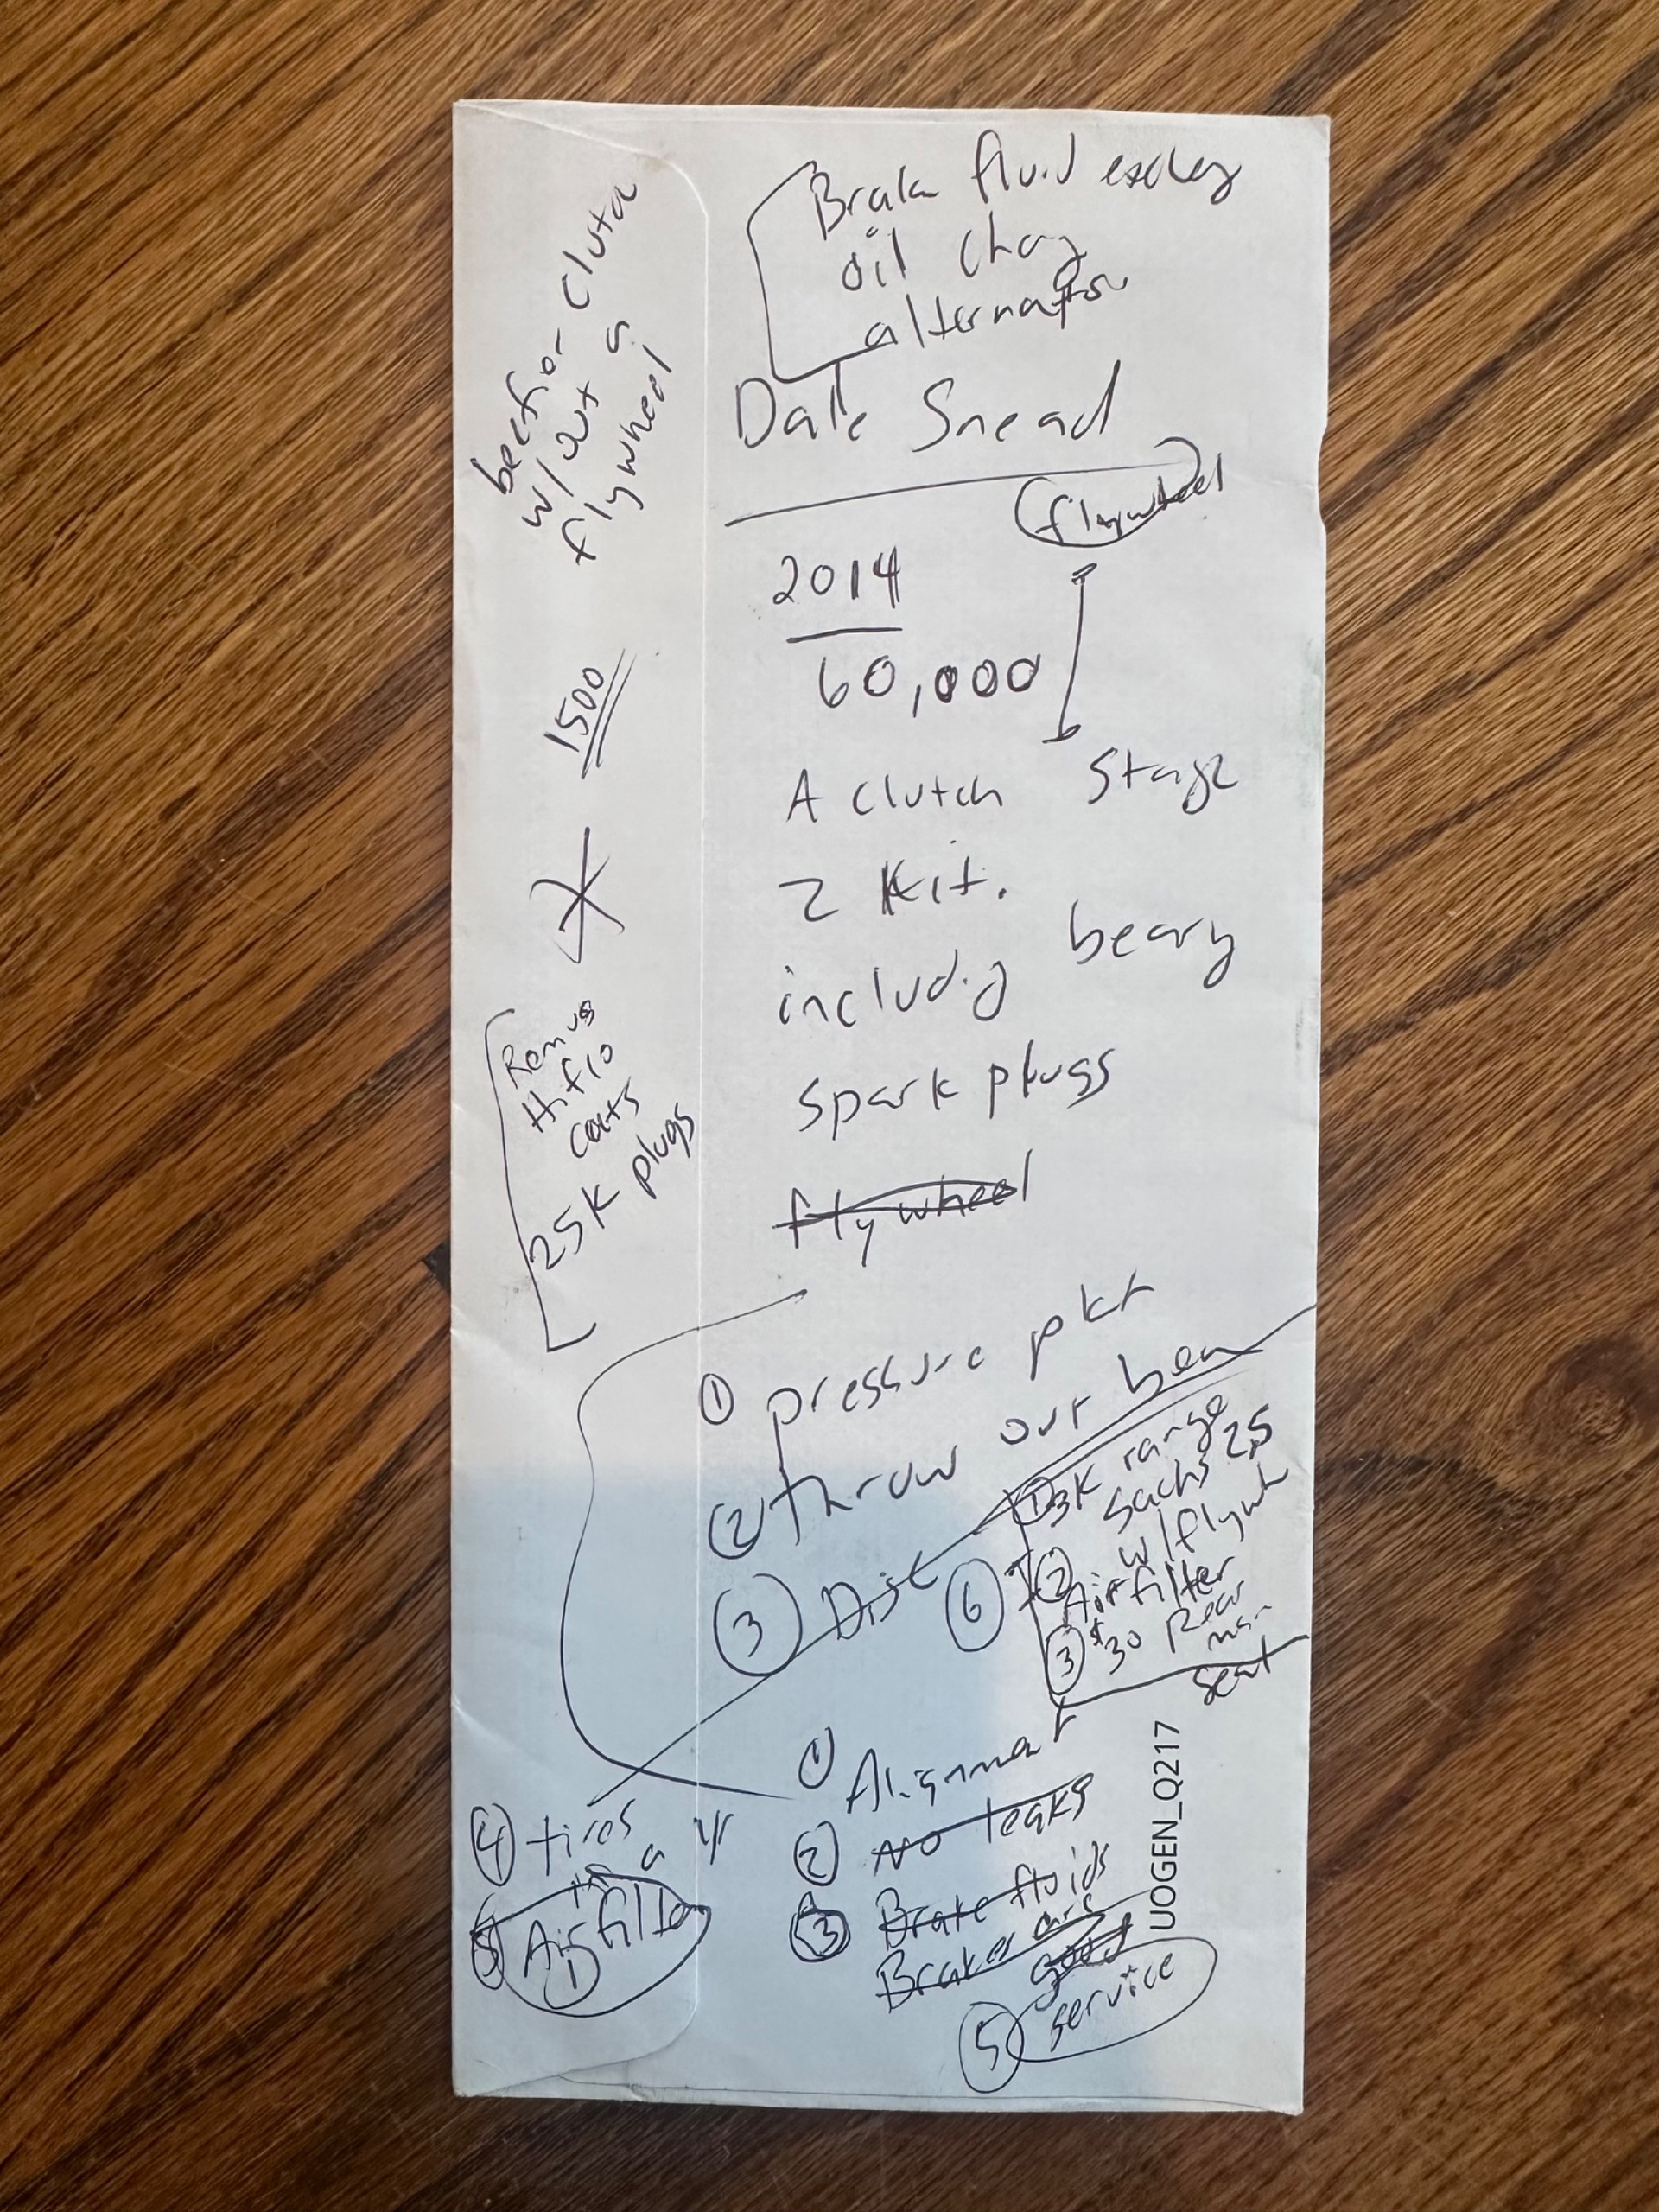 Brake fluid
oil
alternator
Date Snead
flywheel
2014
60,000
A clutch Stage
2 Kit.
including
spark plugs
flywheel
① pressure
② throw out
③ Disc
⑥
① 3K range
Sachs 2.5
w/flywh
② Air filter
③ $30 Rear
seat
①
② no leaks
③ Brake fluids
Brakes are
good
⑤ service
④ tires
in a yr
⑤ Air filter
①
beefier clutch
w/out a
flywheel
1500
Hiflo
cats
25K plugs
UOGEN_Q217